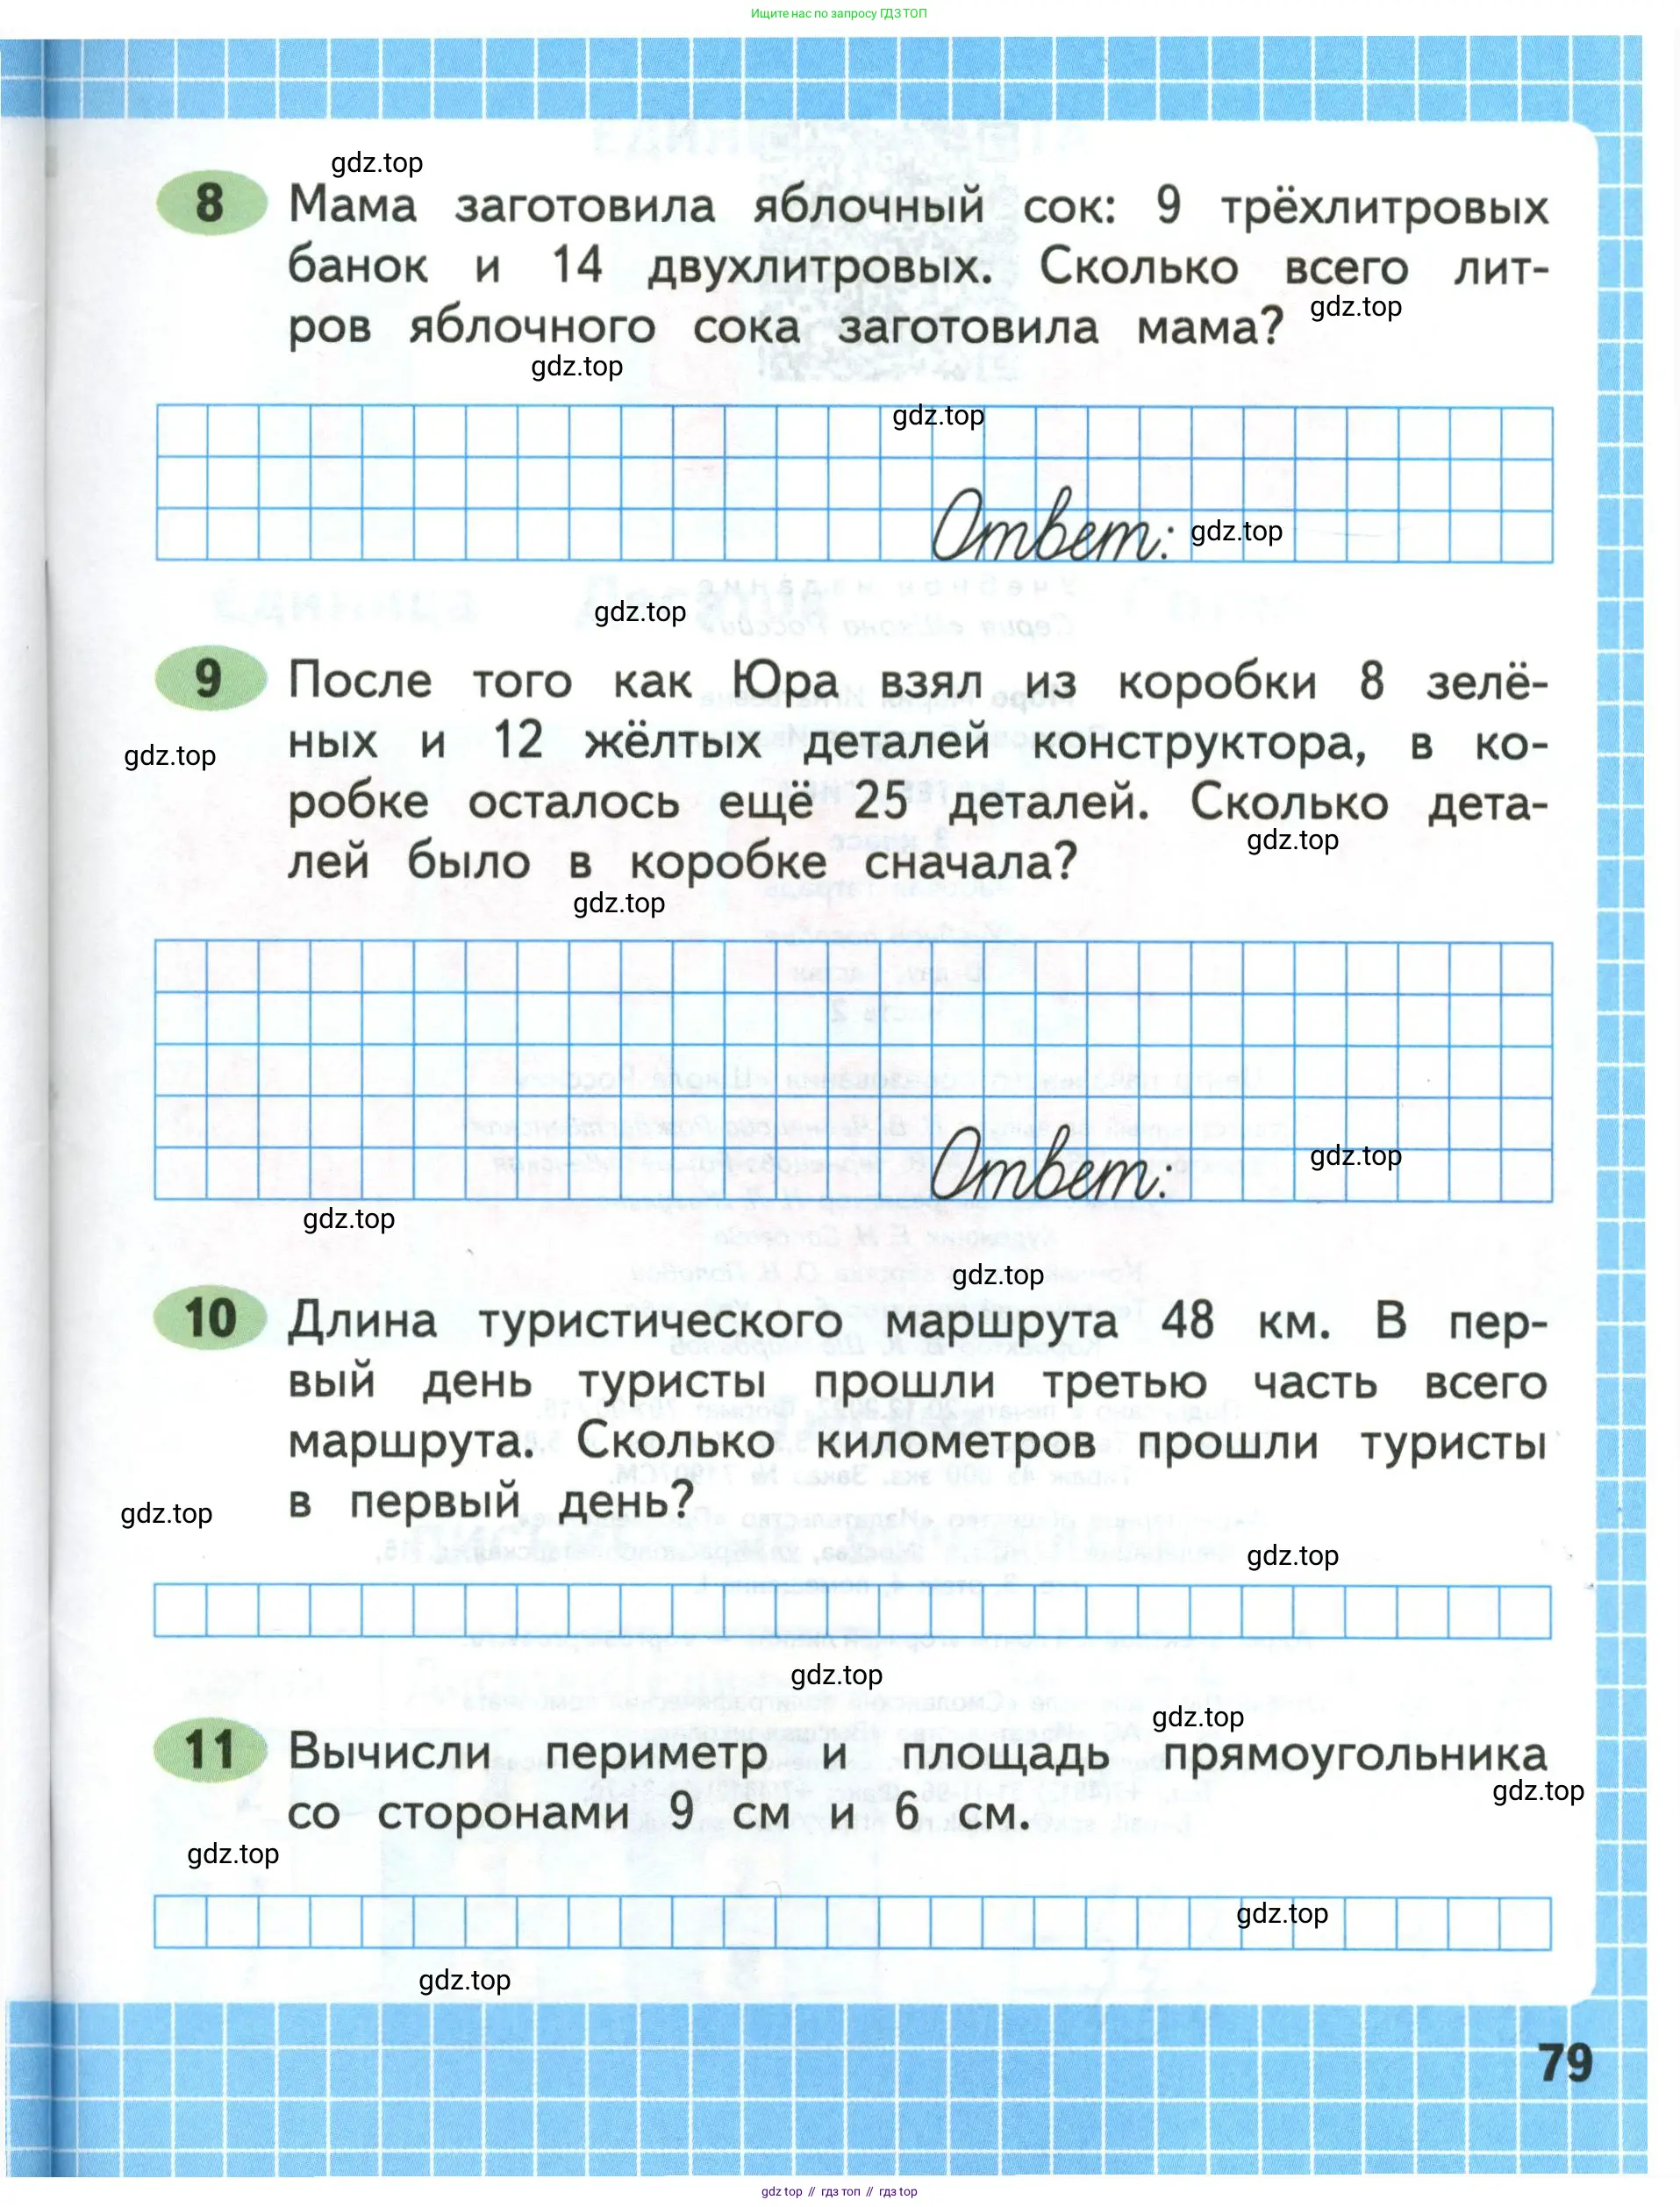 Ищите нас по запросу ГДЗ ТОП
gdz.top
8 Мама заготовила яблочный сок: 9 трёхлитровых
банок и 14 двухлитровых. Сколько всего лит-
gdz.top
ров яблочного сока заготовила мама?
gdz.top
gdz.top
Ответ: gdz.top
gdz.top
9 После того как Юра взял из коробки 8 зелё-
gdz.top ных и 12 жёлтых деталей конструктора, в ко-
робке осталось ещё 25 деталей. Сколько дета-
gdz.top
лей было в коробке сначала?
gdz.top
Ответ: gdz.top
gdz.top
gdz.top
10 Длина туристического маршрута 48 км. В пер-
вый день туристы прошли третью часть всего
маршрута. Сколько километров прошли туристы
gdz.top в первый день?
gdz.top
gdz.top
gdz.top
11 Вычисли периметр и площадь прямоугольника
gdz.top
со сторонами 9 см и 6 см.
gdz.top
gdz.top
gdz.top
79
gdz top // гдз топ // гдз top